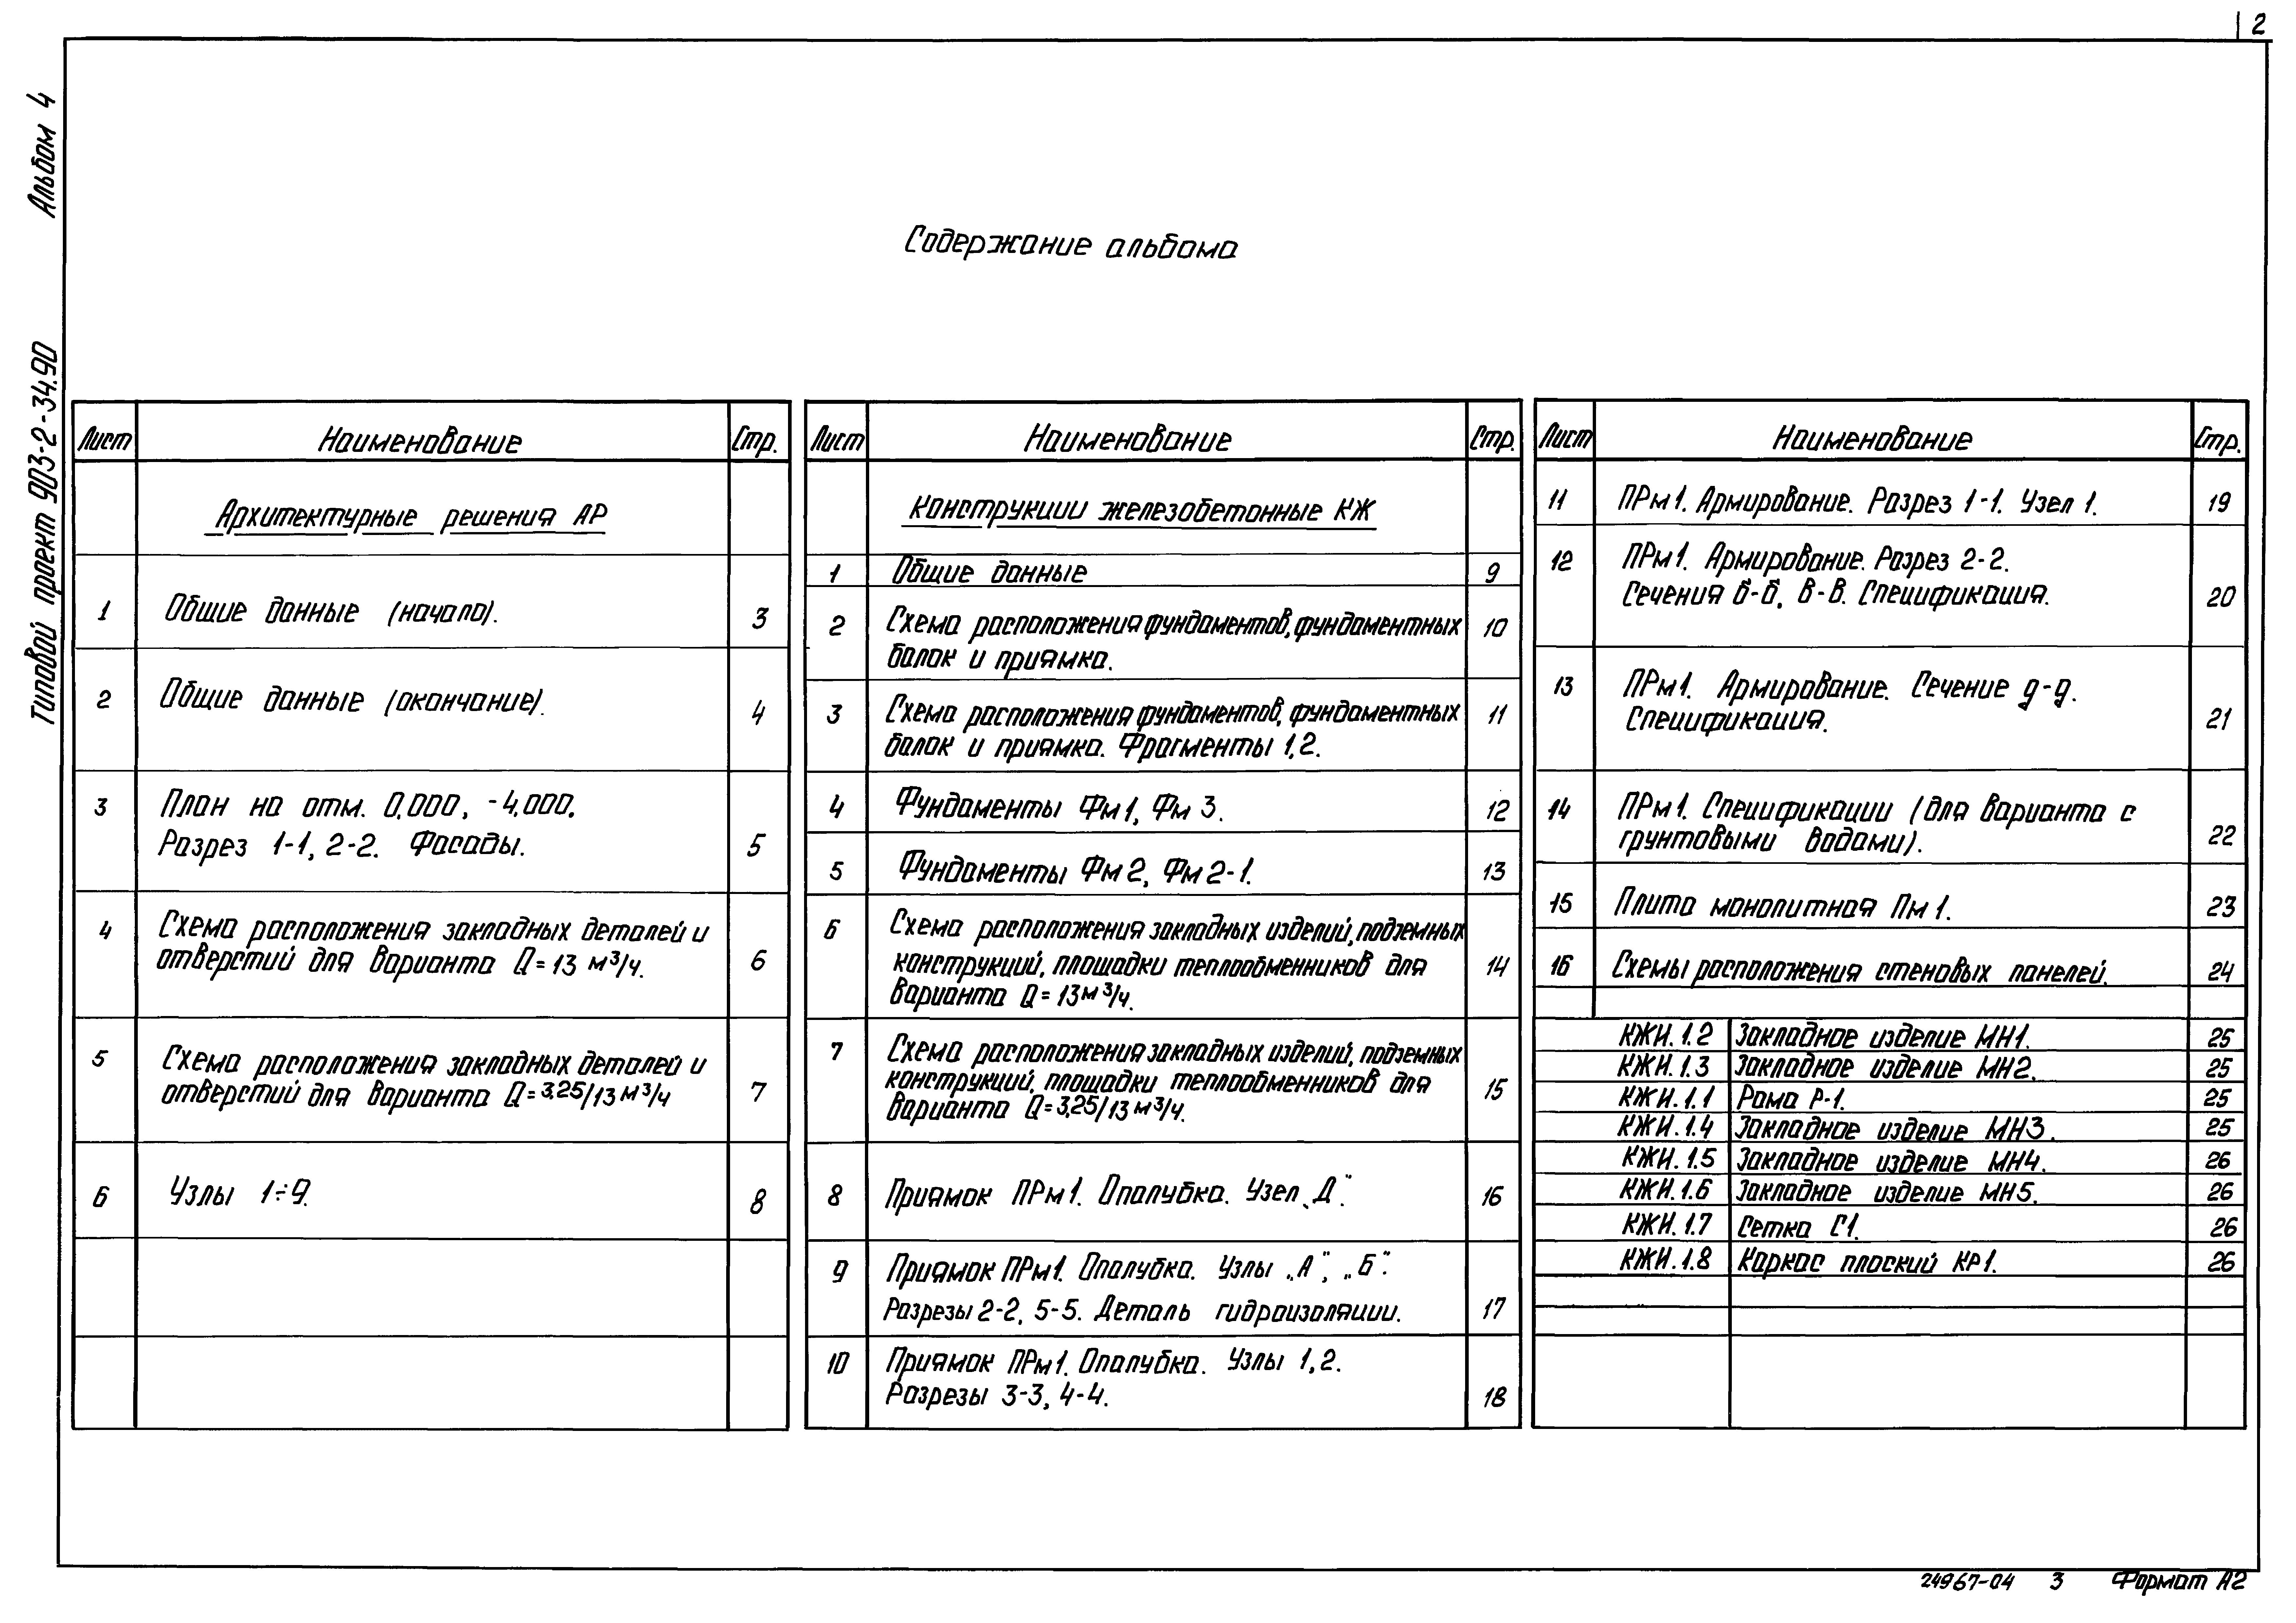 2
Альбом 4
Типовой проект 903-2-34.90
Содержание альбома
Лист Наименование Стр.
Архитектурные решения АР
1 Общие данные (начало). 3
2 Общие данные (окончание). 4
3 План на отм. 0,000, -4,000.
Разрез 1-1, 2-2. Фасады. 5
4 Схема расположения закладных деталей и
отверстий для варианта Q=13 м³/ч. 6
5 Схема расположения закладных деталей и
отверстий для варианта Q=3,25/13 м³/ч 7
6 Узлы 1÷9. 8
Лист Наименование Стр.
Конструкции железобетонные КЖ
1 Общие данные 9
2 Схема расположения фундаментов, фундаментных 10
балок и приямка.
3 Схема расположения фундаментов, фундаментных 11
балок и приямка. Фрагменты 1,2.
4 Фундаменты Фм1, Фм 3. 12
5 Фундаменты Фм 2, Фм 2-1. 13
6 Схема расположения закладных изделий, подземных
конструкций, площадки теплообменников для 14
варианта Q=13м³/ч.
7 Схема расположения закладных изделий, подземных
конструкций, площадки теплообменников для 15
варианта Q=3,25/13 м³/ч.
8 Приямок ПРм1. Опалубка. Узел „Д". 16
9 Приямок ПРм1. Опалубка. Узлы „А", „Б".
Разрезы 2-2, 5-5. Деталь гидроизоляции. 17
10 Приямок ПРм1. Опалубка. Узлы 1,2.
Разрезы 3-3, 4-4. 18
Лист Наименование Стр.
11 ПРм1. Армирование. Разрез 1-1. Узел 1. 19
12 ПРм1. Армирование. Разрез 2-2.
Сечения б-б, в-в. Спецификация. 20
13 ПРм1. Армирование. Сечение д-д.
Спецификация. 21
14 ПРм1. Спецификации (для варианта с
грунтовыми водами). 22
15 Плита монолитная Пм1. 23
16 Схемы расположения стеновых панелей. 24
КЖИ.1.2 Закладное изделие МН1. 25
КЖИ.1.3 Закладное изделие МН2. 25
КЖИ.1.1 Рама Р-1. 25
КЖИ.1.4 Закладное изделие МН3. 25
КЖИ.1.5 Закладное изделие МН4. 26
КЖИ.1.6 Закладное изделие МН5. 26
КЖИ.1.7 Сетка С1. 26
КЖИ.1.8 Каркас плоский КР1. 26
24967-04 3 Формат А2